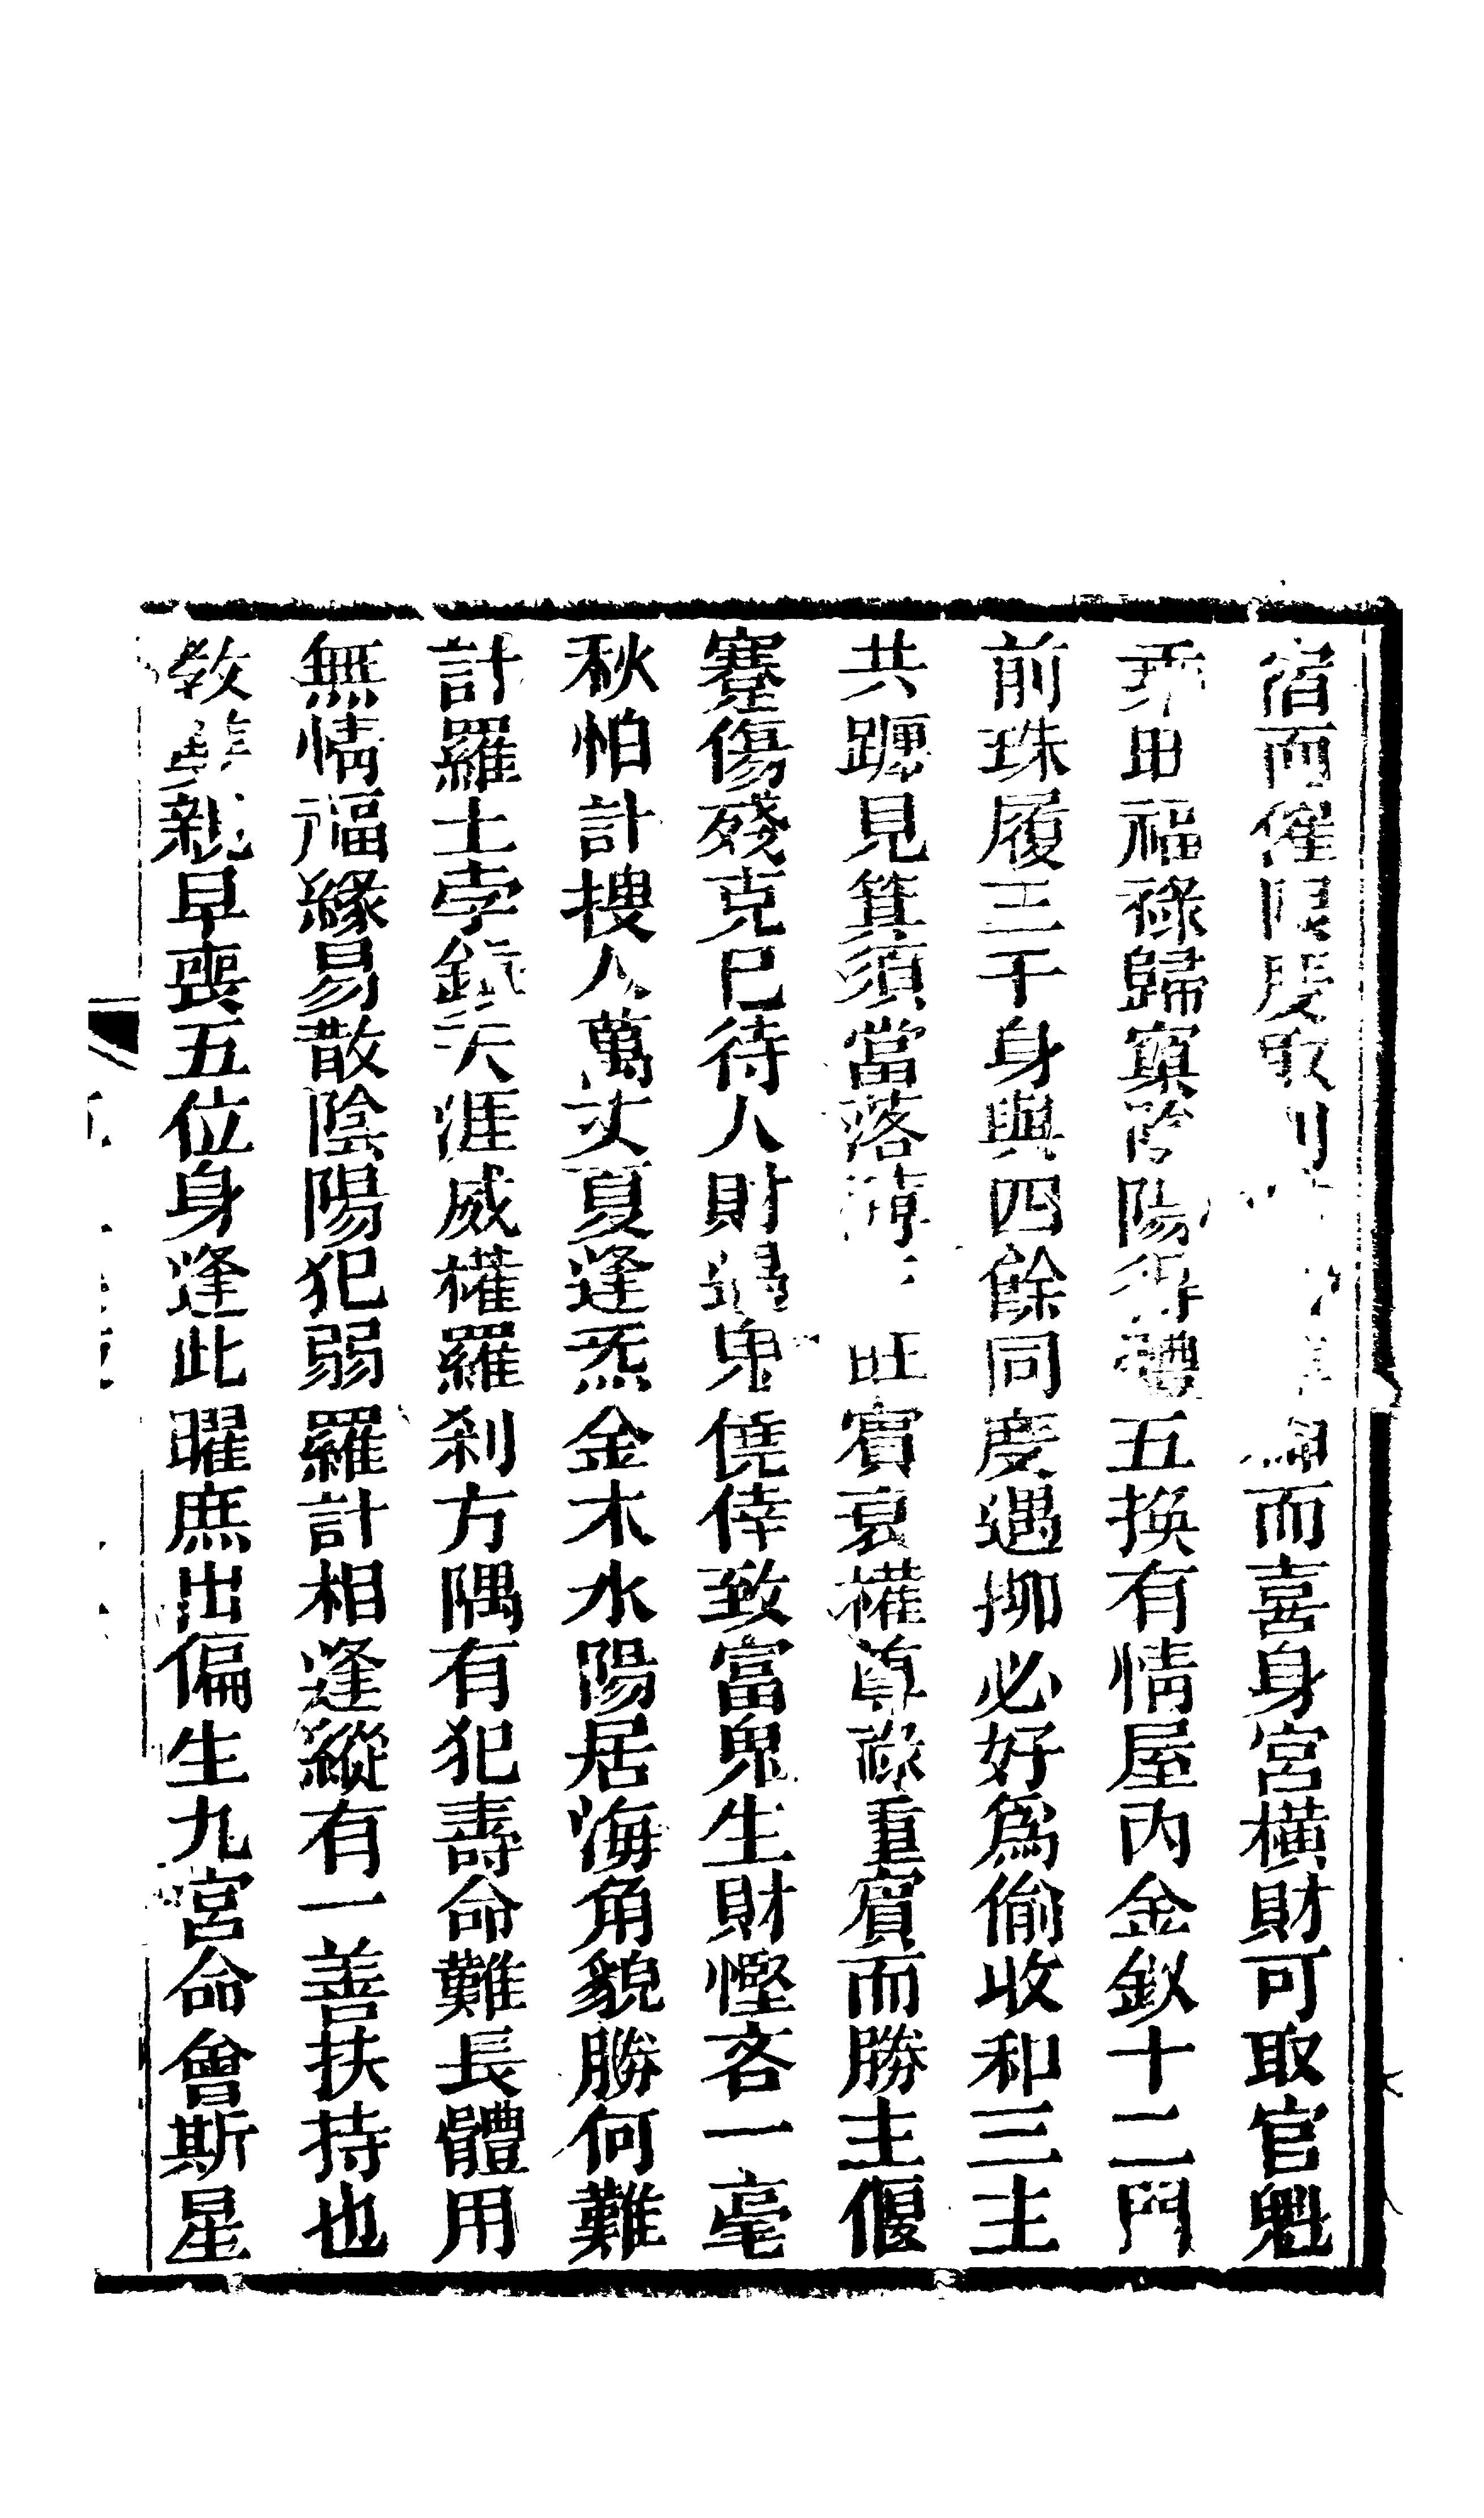 宿而催限度取 而喜身宮橫財可取官魁
福祿歸窠陰陽得體五換有情屋內金釵十二門
前珠履三千身與四餘同度遇抑必好爲偷收和三主
共躔見箕須當落薄 旺賓衰權尊祿重賓而勝主偃
蹇傷殘克已待人財遇鬼僥倖致富鬼生財慳吝一毫
秋怕計搜人萬丈夏逢炁金木水陽居海角貌勝何難
計羅土孛鎮天涯威權羅刹方隅有犯壽命難長體用
無情福緣易散陰陽犯弱羅計相逢縱有一善扶持也
教 親早喪五位身逢此曜庶出偏生九宮命會斯星